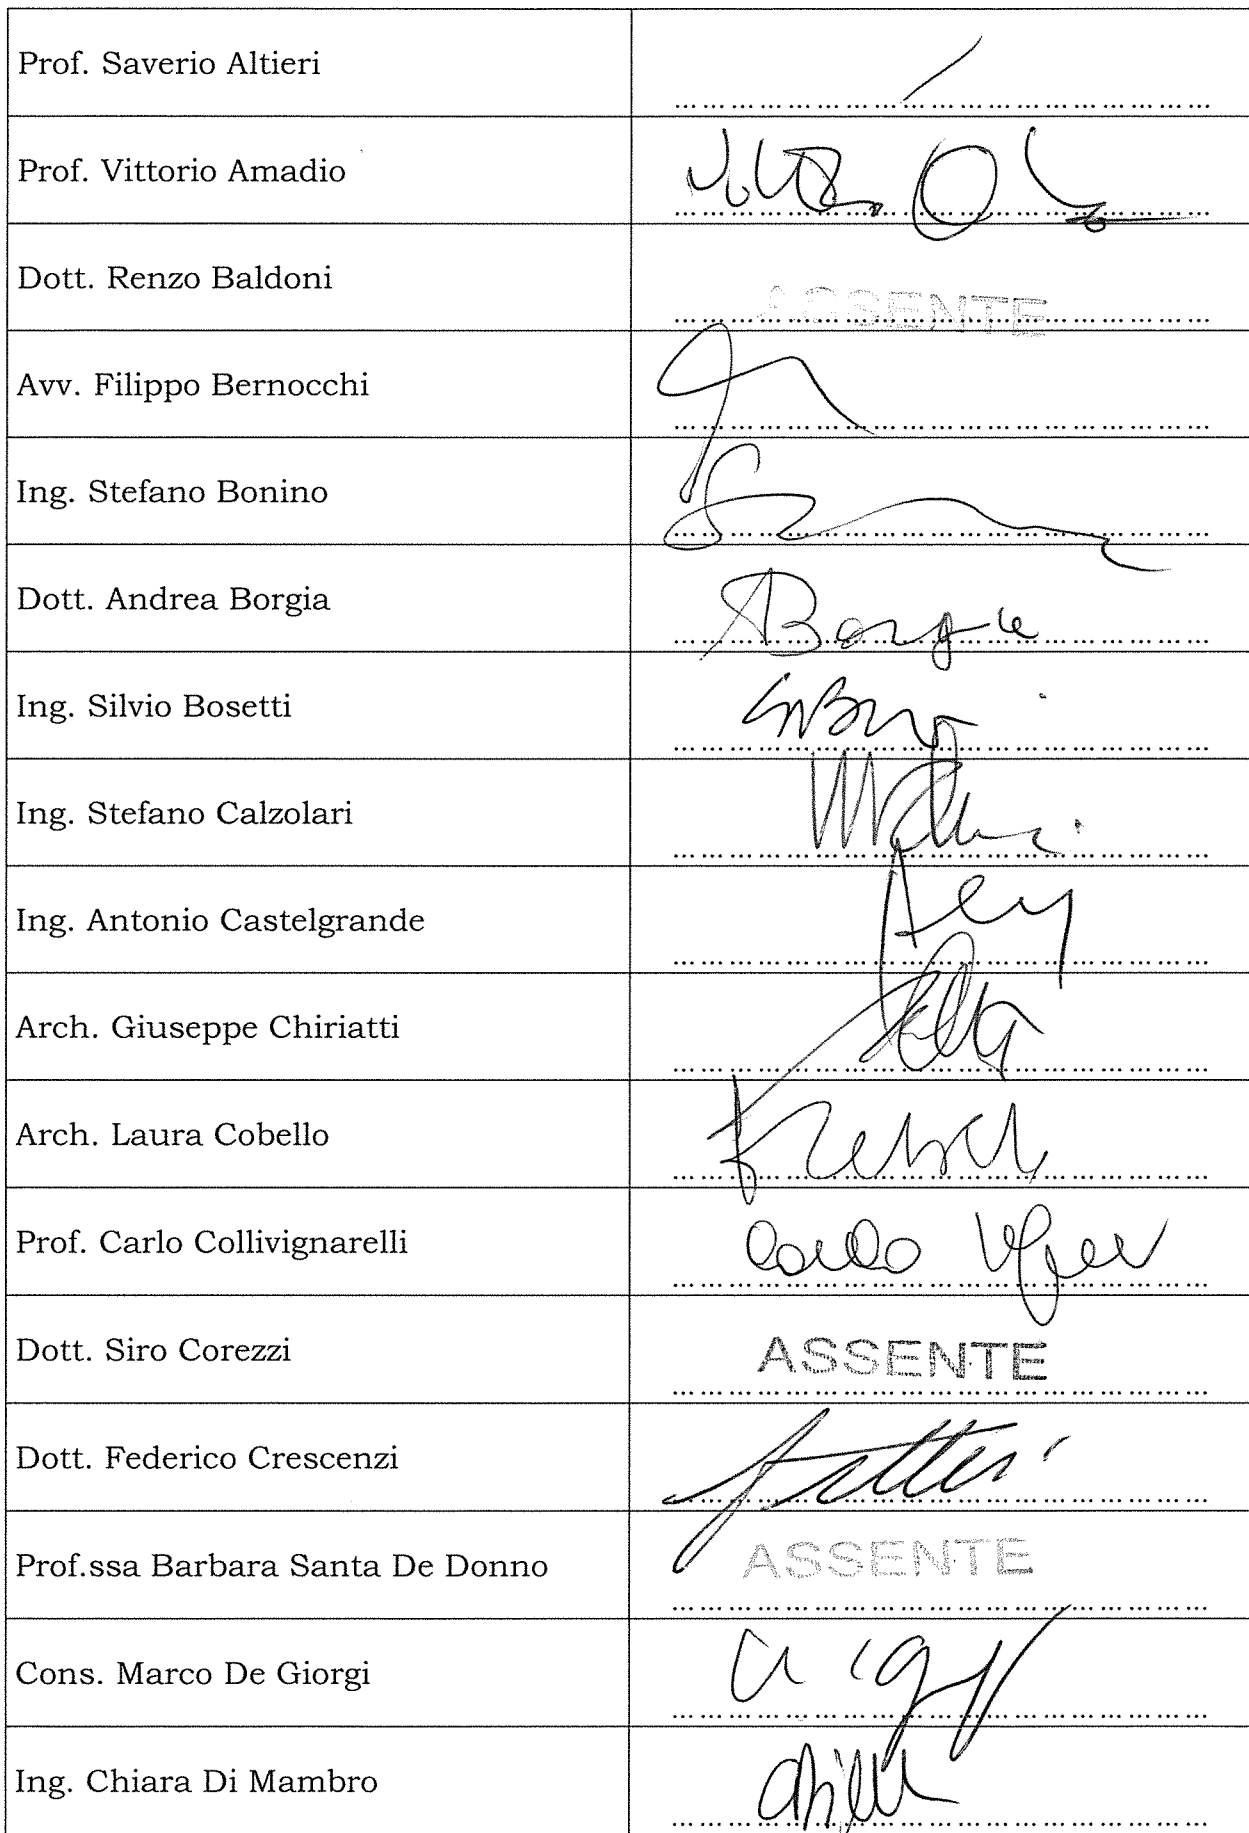 Prof. Saverio Altieri
Prof. Vittorio Amadio
Dott. Renzo Baldoni
ASSENTE
Avv. Filippo Bernocchi
Ing. Stefano Bonino
Dott. Andrea Borgia
ABorgia
Ing. Silvio Bosetti
Ing. Stefano Calzolari
Ing. Antonio Castelgrande
Arch. Giuseppe Chiriatti
Arch. Laura Cobello
Prof. Carlo Collivignarelli
Carlo
Dott. Siro Corezzi
ASSENTE
Dott. Federico Crescenzi
Prof.ssa Barbara Santa De Donno
ASSENTE
Cons. Marco De Giorgi
Ing. Chiara Di Mambro